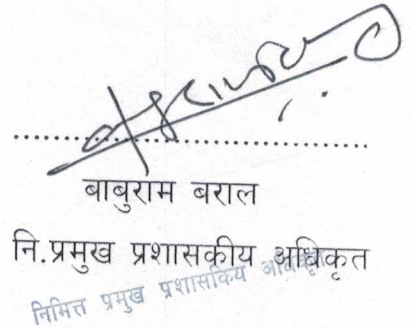 बाबुराम बराल
नि.प्रमुख प्रशासकीय अधिकृत
निमित्त प्रमुख प्रशासकिय अधिकृत